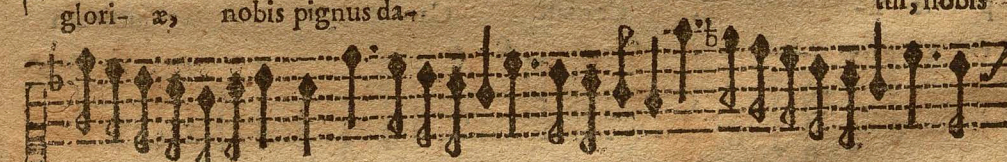 glori- æ, nobis pignus da- tur, nobis